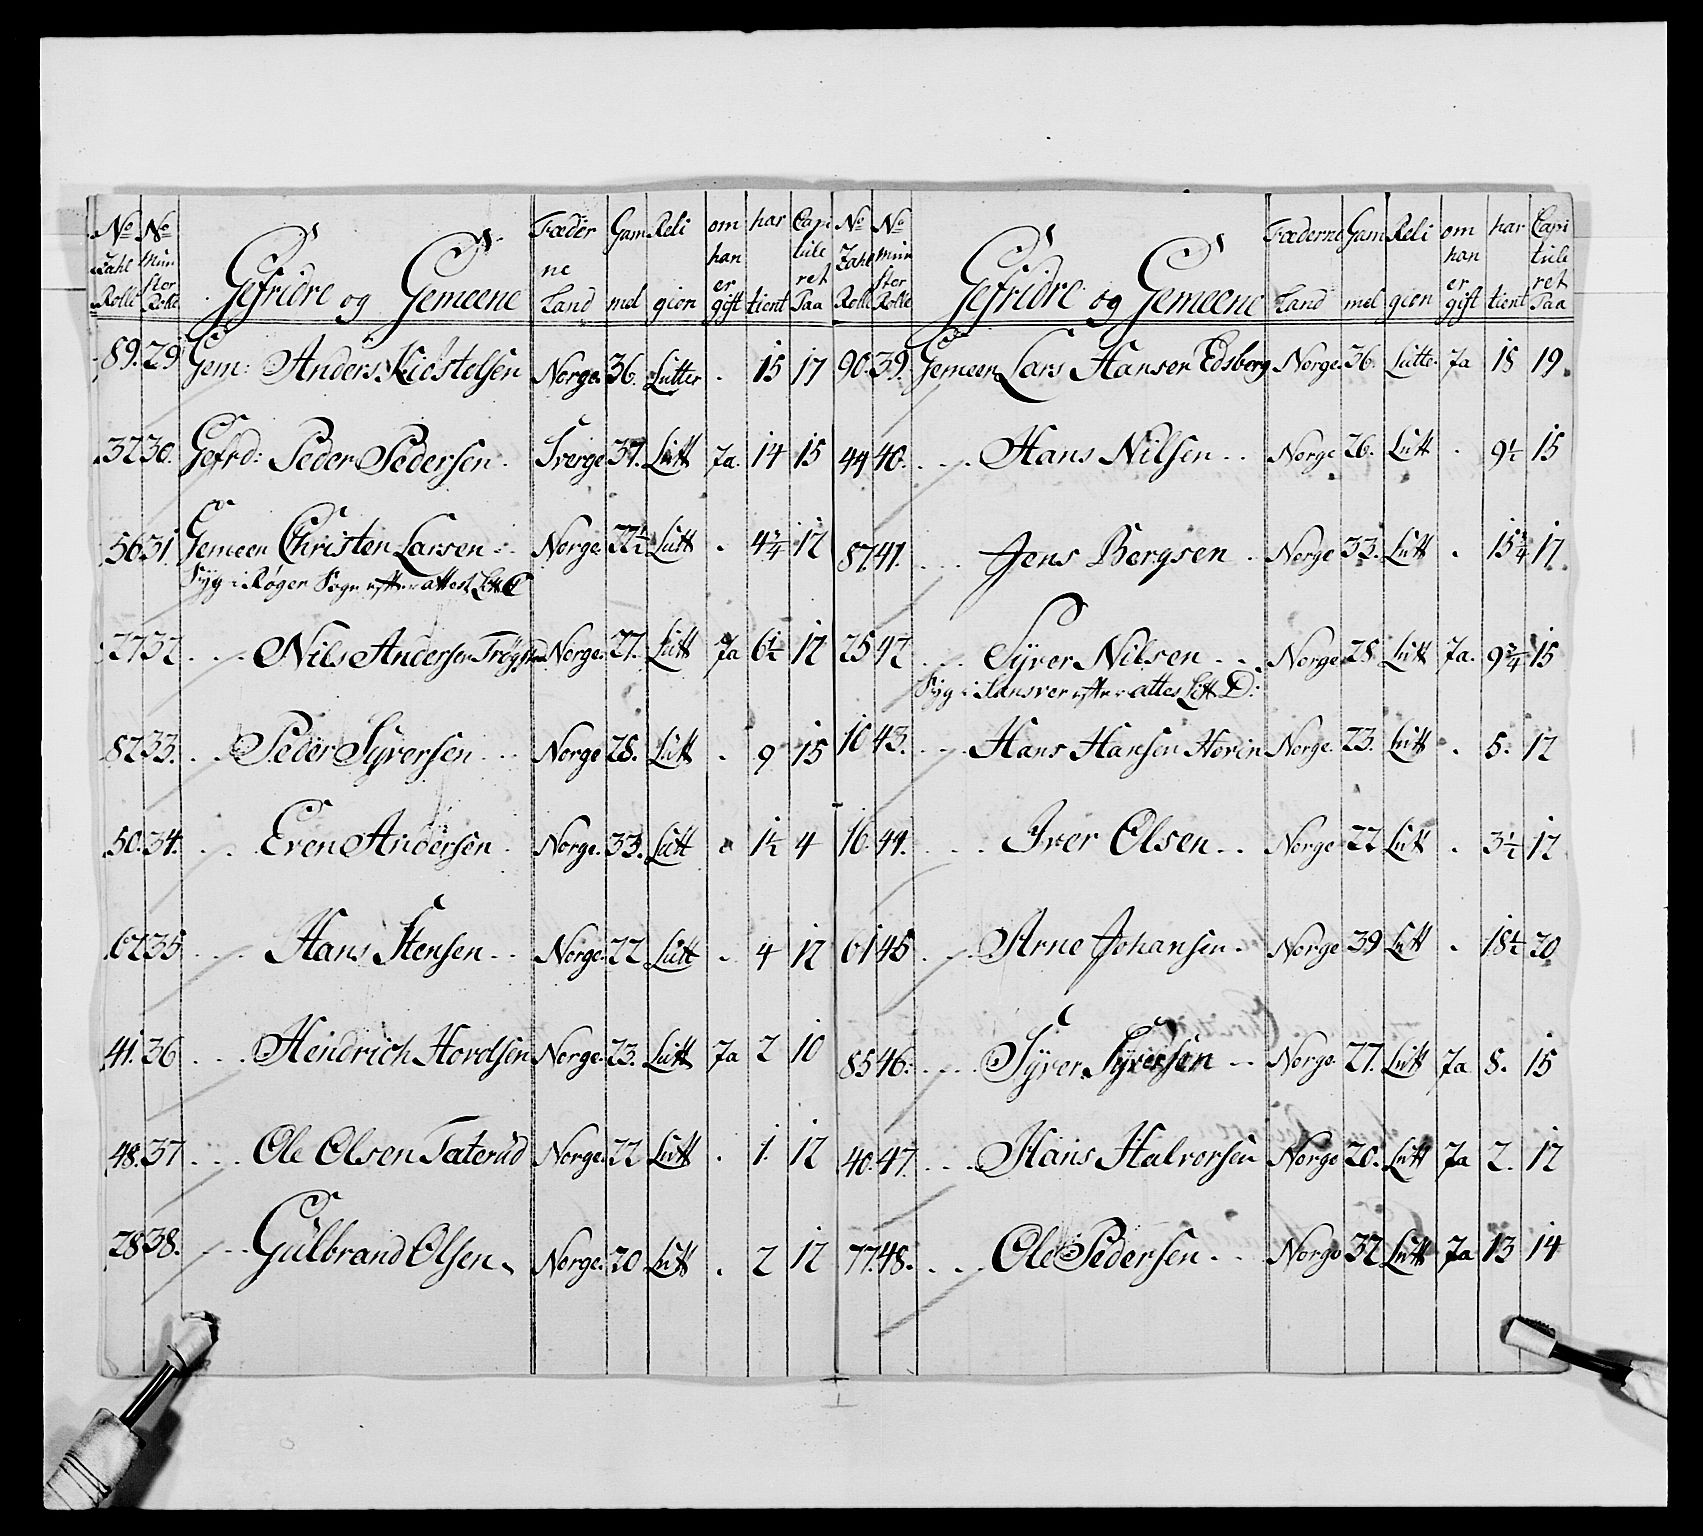 No Zahl Rolle | No Mün ster Rolle | Gefridre og Gemeene | Fæder ne Land | Gam mel | Reli gion | om han er gift | har tient | Capi tule ret Paa
89. | 29 | Gem: Anders Kiöstelsen | Norge. | 36. | Lutter | . | 15 | 17
32 | 30. | Gefrd: Peder Pedersen. | Sverge | 37. | Lutt | Ja. | 14 | 15
56 | 31. | Gemeen Christen Larsen | Norge. | 22½ | Lutt | . | 4¾ | 12
Syg i Røger Sogn efter attest Litt C
27 | 32 | Nils Andersen | Norge. | 27. | Lutt | Ja | 6½ | 12
82 | 33. | Peder Syversen | Norge | 28. | Lutt | . | 9 | 15
50. | 34. | Even Andersen | Norge. | 33. | Lutt | . | 1½ | 4
62 | 35 | Hans Stensen | Norge. | 22 | Lutt | . | 4 | 12
41. | 36 | Hendrich Hordsen | Norge. | 23. | Lutt | Ja | 2 | 10
48. | 37 | Ole Olsen Taterud | Norge. | 22 | Lutt | . | 1. | 12
28 | 38. | Gulbrand Olsen | Norge. | 20 | Lutt | . | 2 | 12
No Zahl Rolle | No Mün ster Rolle | Gefridre og Gemeene | Fæderne Land | Gam mel | Reli gion | om han er gift | har tient | Capi tule ret Paa
90. | 39. | Gemeen Lars Hansen Edsberg | Norge. | 36. | Lutte. | Ja | 18 | 19.
44 | 40. | Hans Nilsen | Norge | 26. | Lutt | . | 9½ | 15
87. | 41. | Jens Bergsen | Norge | 33. | Lutt | . | 15¾ | 17.
25 | 42 | Syver Nilsen | Norge | 28 | Lutt | Ja. | 9¾ | 15
Syg i efter attes Litt D:
10 | 43. | Hans Hansen Horin | Norge. | 23. | Lutt | . | 5. | 12
16. | 44. | Iver Olsen | Norge | 22 | Lutt | . | 3½ | 12
61 | 45 | Arne Johansen | Norge | 39 | Lutt | . | 18½ | 20
85 | 46. | Syver Syversen | Norge | 27. | Lutt | Ja | 8. | 15
40. | 47. | Hans Halvorsen | Norge | 20. | Lutt | Ja | 2. | 12
77. | 48. | Ole Pedersen | Norge | 32 | Lutt | Ja | 13 | 14